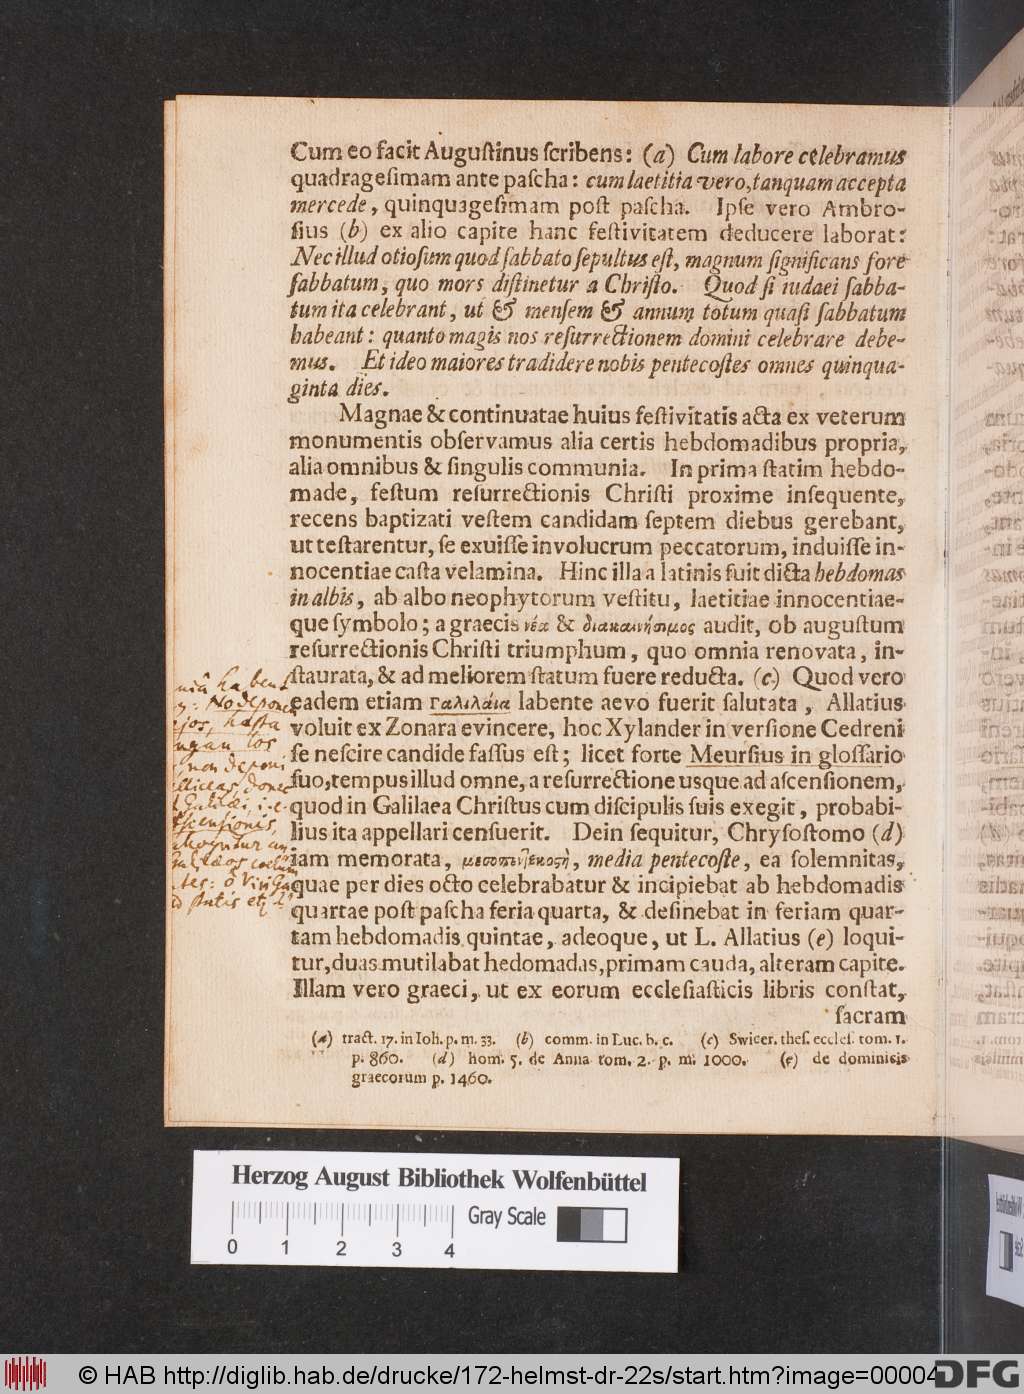 Cum eo facit Auguſtinus ſcribens: (a) Cum labore celebramus
quadrageſimam ante paſcha: cum laetitia vero, tanquam accepta
mercede, quinquageſimam poſt paſcha. Ipſe vero Ambro-
ſius (b) ex alio capite hanc feſtivitatem deducere laborat:
Nec illud otioſum quod ſabbato ſepultus eſt, magnum ſignificans fore
ſabbatum, quo mors diſtinetur a Chriſto. Quod ſi iudaei ſabba-
tum ita celebrant, ut & menſem & annum totum quaſi ſabbatum
habeant: quanto magis nos reſurrectionem domini celebrare debe-
mus. Et ideo maiores tradidere nobis pentecoſtes omnes quinqua-
ginta dies.
Magnae & continuatae huius feſtivitatis acta ex veterum
monumentis obſervamus alia certis hebdomadibus propria,
alia omnibus & ſingulis communia. In prima ſtatim hebdo-
made, feſtum reſurrectionis Chriſti proxime inſequente,
recens baptizati veſtem candidam ſeptem diebus gerebant,
ut teſtarentur, ſe exuiſſe involucrum peccatorum, induiſſe in-
nocentiae caſta velamina. Hinc illa a latinis fuit dicta hebdomas
in albis, ab albo neophytorum veſtitu, laetitiae innocentiae-
que ſymbolo; a graecis νέα & διακαινήσιμος audit, ob auguſtum
reſurrectionis Chriſti triumphum, quo omnia renovata, in-
ſtaurata, & ad meliorem ſtatum fuere reducta. (c) Quod vero
eadem etiam γαλιλάια labente aevo fuerit ſalutata, Allatius
voluit ex Zonara evincere, hoc Xylander in verſione Cedreni
ſe neſcire candide faſſus eſt; licet forte Meurſius in gloſſario
ſuo, tempus illud omne, a reſurrectione usque ad aſcenſionem,
quod in Galilaea Chriſtus cum diſcipulis ſuis exegit, probabi-
lius ita appellari cenſuerit. Dein ſequitur, Chryſoſtomo (d)
iam memorata, μεσοπεντηκοστὴ, media pentecoſte, ea ſolemnitas,
quae per dies octo celebrabatur & incipiebat ab hebdomadis
quartae poſt paſcha feria quarta, & deſinebat in feriam quar-
tam hebdomadis quintae, adeoque, ut L. Allatius (e) loqui-
tur, duas mutilabat hedomadas, primam cauda, alteram capite.
Illam vero graeci, ut ex eorum eccleſiaſticis libris conſtat,
ſacram
(a) tract. 17. in Ioh. p. m. 33. (b) comm. in Luc. b. c. (c) Swicer. theſ. eccleſ. tom. 1.
p. 860. (d) hom. 5. de Anna tom. 2. p. m. 1000. (e) de dominicis
graecorum p. 1460.
habent
Herzog August Bibliothek Wolfenbüttel
Gray Scale
0 1 2 3 4
© HAB http://diglib.hab.de/drucke/172-helmst-dr-22s/start.htm?image=00004
DFG